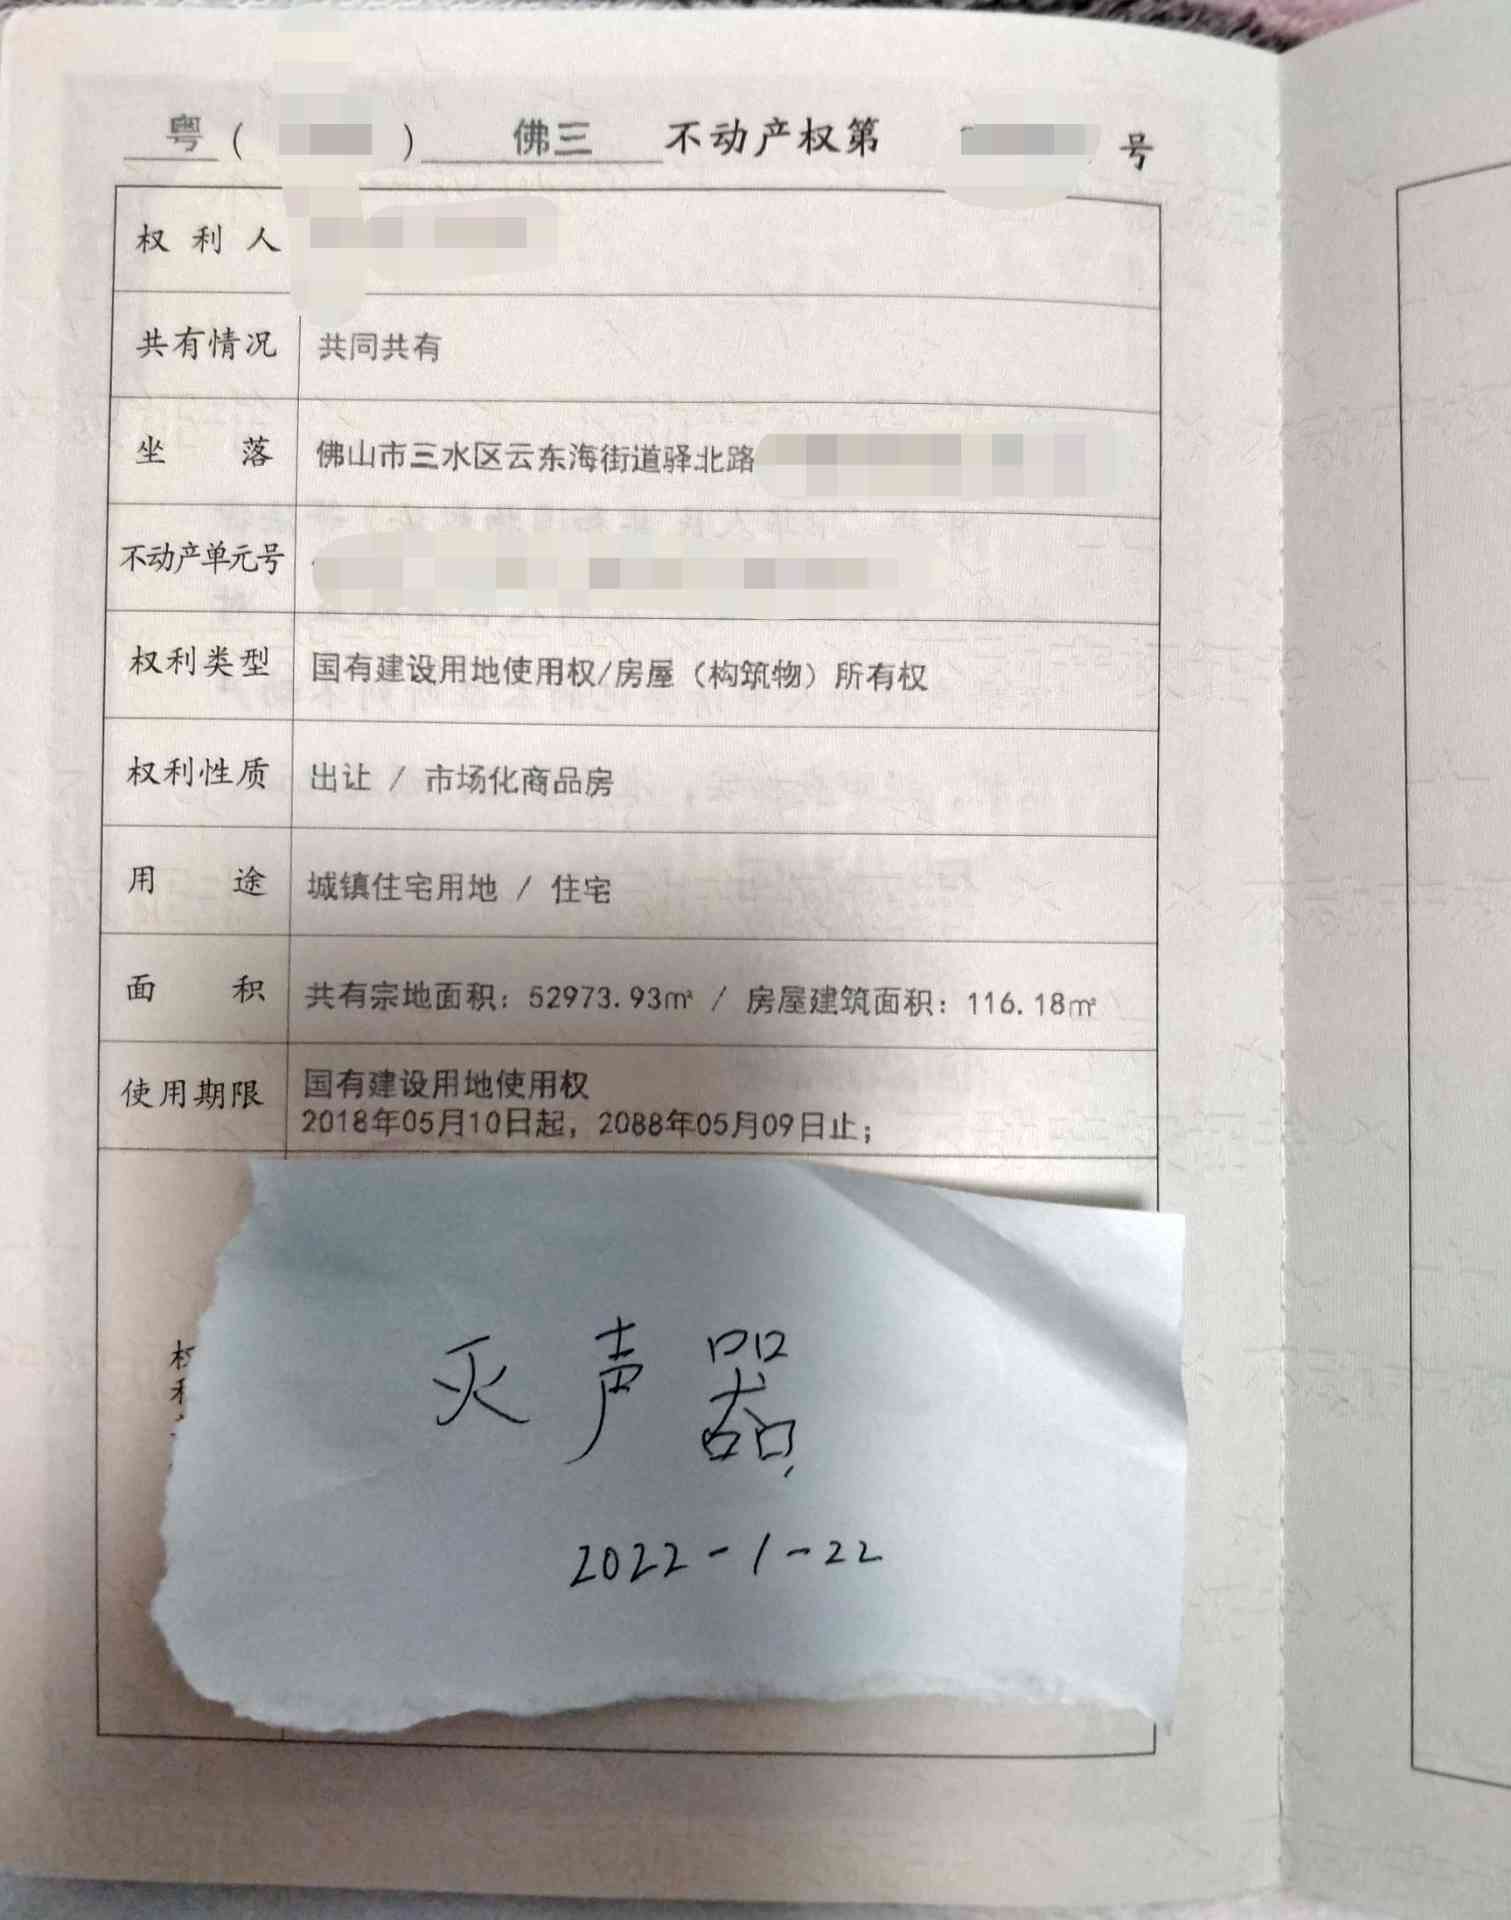 粤（ ） 佛三 不动产权第 号
权利人
共有情况 共同共有
坐落 佛山市三水区云东海街道驿北路
不动产单元号
权利类型 国有建设用地使用权/房屋（构筑物）所有权
权利性质 出让 / 市场化商品房
用途 城镇住宅用地 / 住宅
面积 共有宗地面积：52973.93㎡ / 房屋建筑面积：116.18㎡
使用期限 国有建设用地使用权
2018年05月10日起，2088年05月09日止；
灭声器
2022-1-22